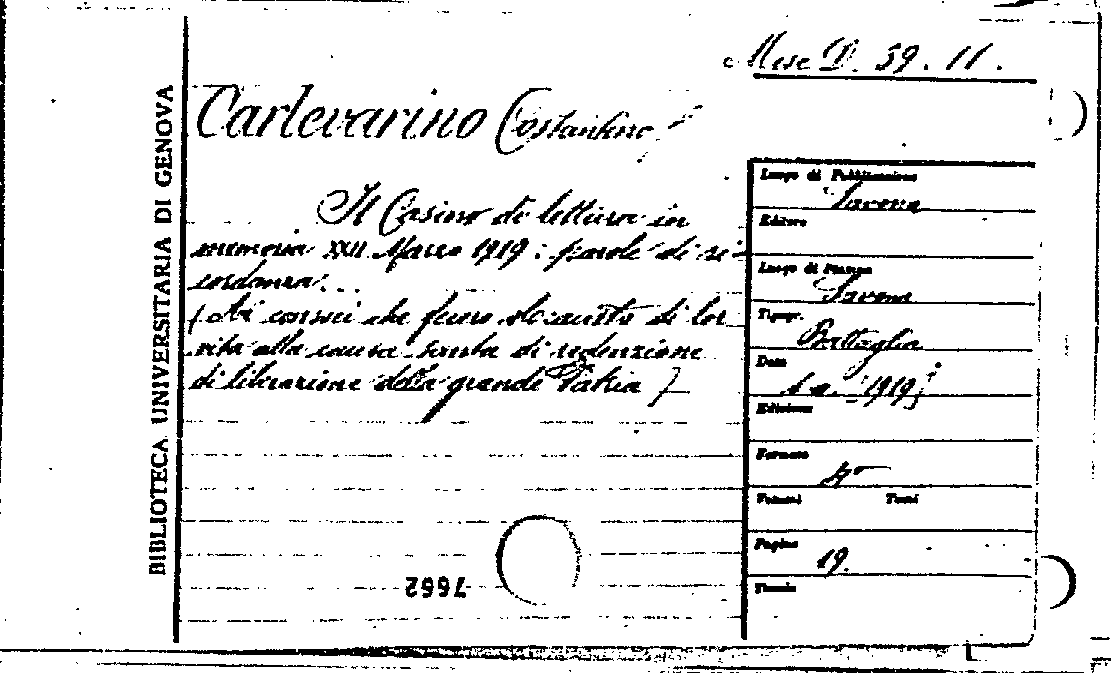 Misc D. 59. 11.
BIBLIOTECA UNIVERSITARIA DI GENOVA
Carlevarino Costantino
Il Casino di lettura in
memoria XXII Marzo 1919: parole di ri-
cordanza...
(Ai consoci che fecero olocausto di lor
vita alla causa santa di redenzione
di liberazione della grande Patria)
7662
Luogo di Pubblicazione
Savona
Editore
Luogo di Stampa
Savona
Tipogr.
Bottaglia
Data
s. a. [1919]
Edizione
Formato
4°
Volumi Tomi
Pagine
19.
Tavole